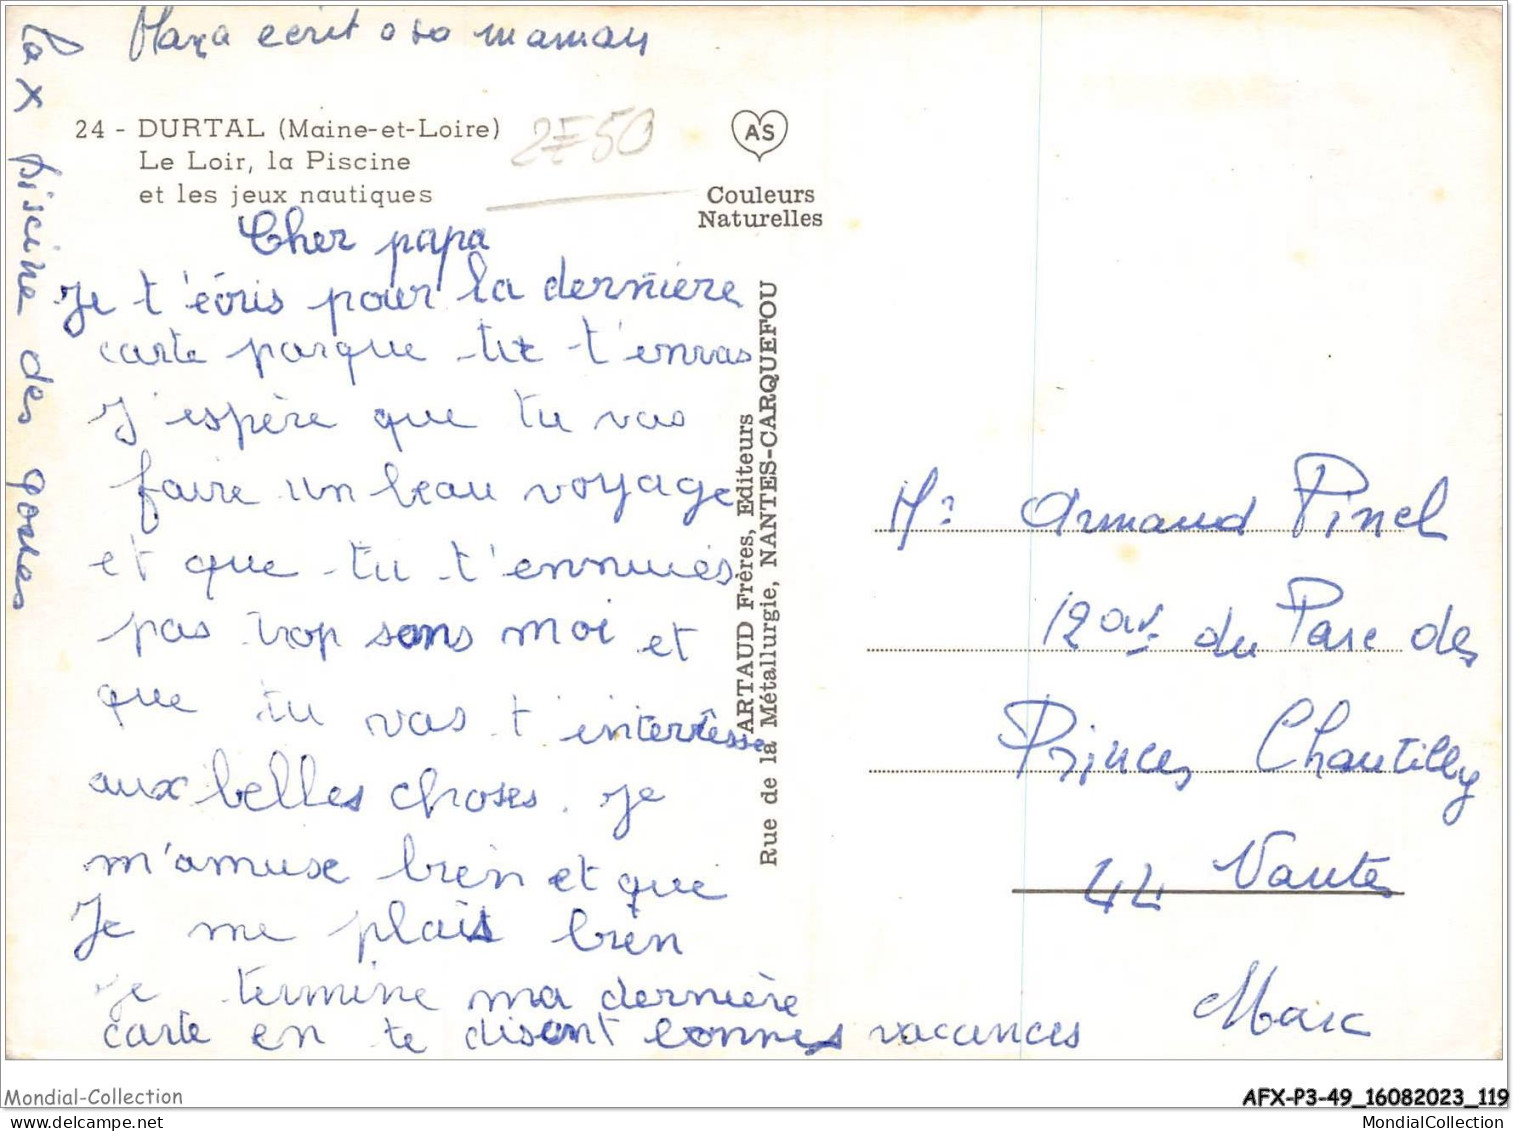 écrit a sa maman
la x piscine des gosses
24 - DURTAL (Maine-et-Loire)
Le Loir, la Piscine
et les jeux nautiques
2F50
AS
Couleurs
Naturelles
Cher papa
Je t'écris pour la dernière
carte parque tu t'envas
J'espère que tu vas
faire un beau voyage
et que tu t'ennuies
pas trop sans moi et
que tu vas t'interresse
aux belles choses. je
m'amuse bien et que
Je me plais bien
je termine ma dernière
carte en te disant bonnes vacances
ARTAUD Frères, Editeurs
Rue de la Métallurgie, NANTES-CARQUEFOU
Mr Armand Pinel
12 av. du Parc des
Princes Chantilly
44 Nantes
Marc
Mondial-Collection
AFX-P3-49_16082023_119
MondialCollection